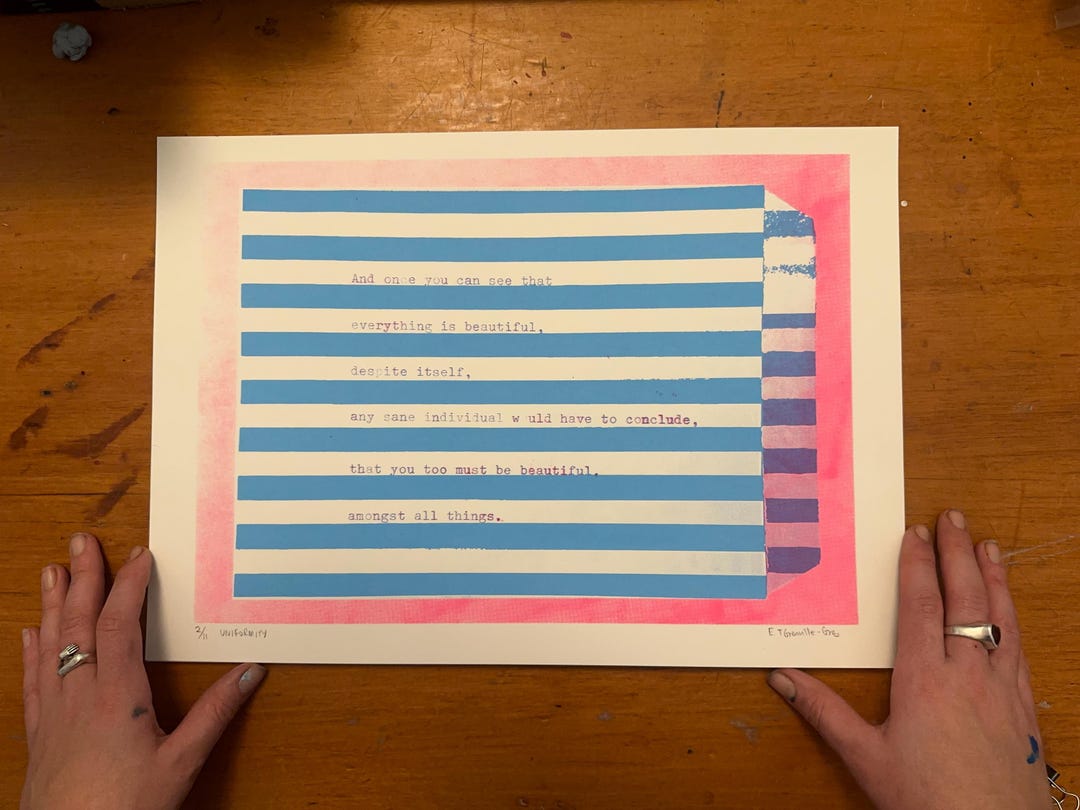 And once you can see that
everything is beautiful,
despite itself,
any sane individual w uld have to conclude,
that you too must be beautiful.
amongst all things.
2/11 UNIFORMITY